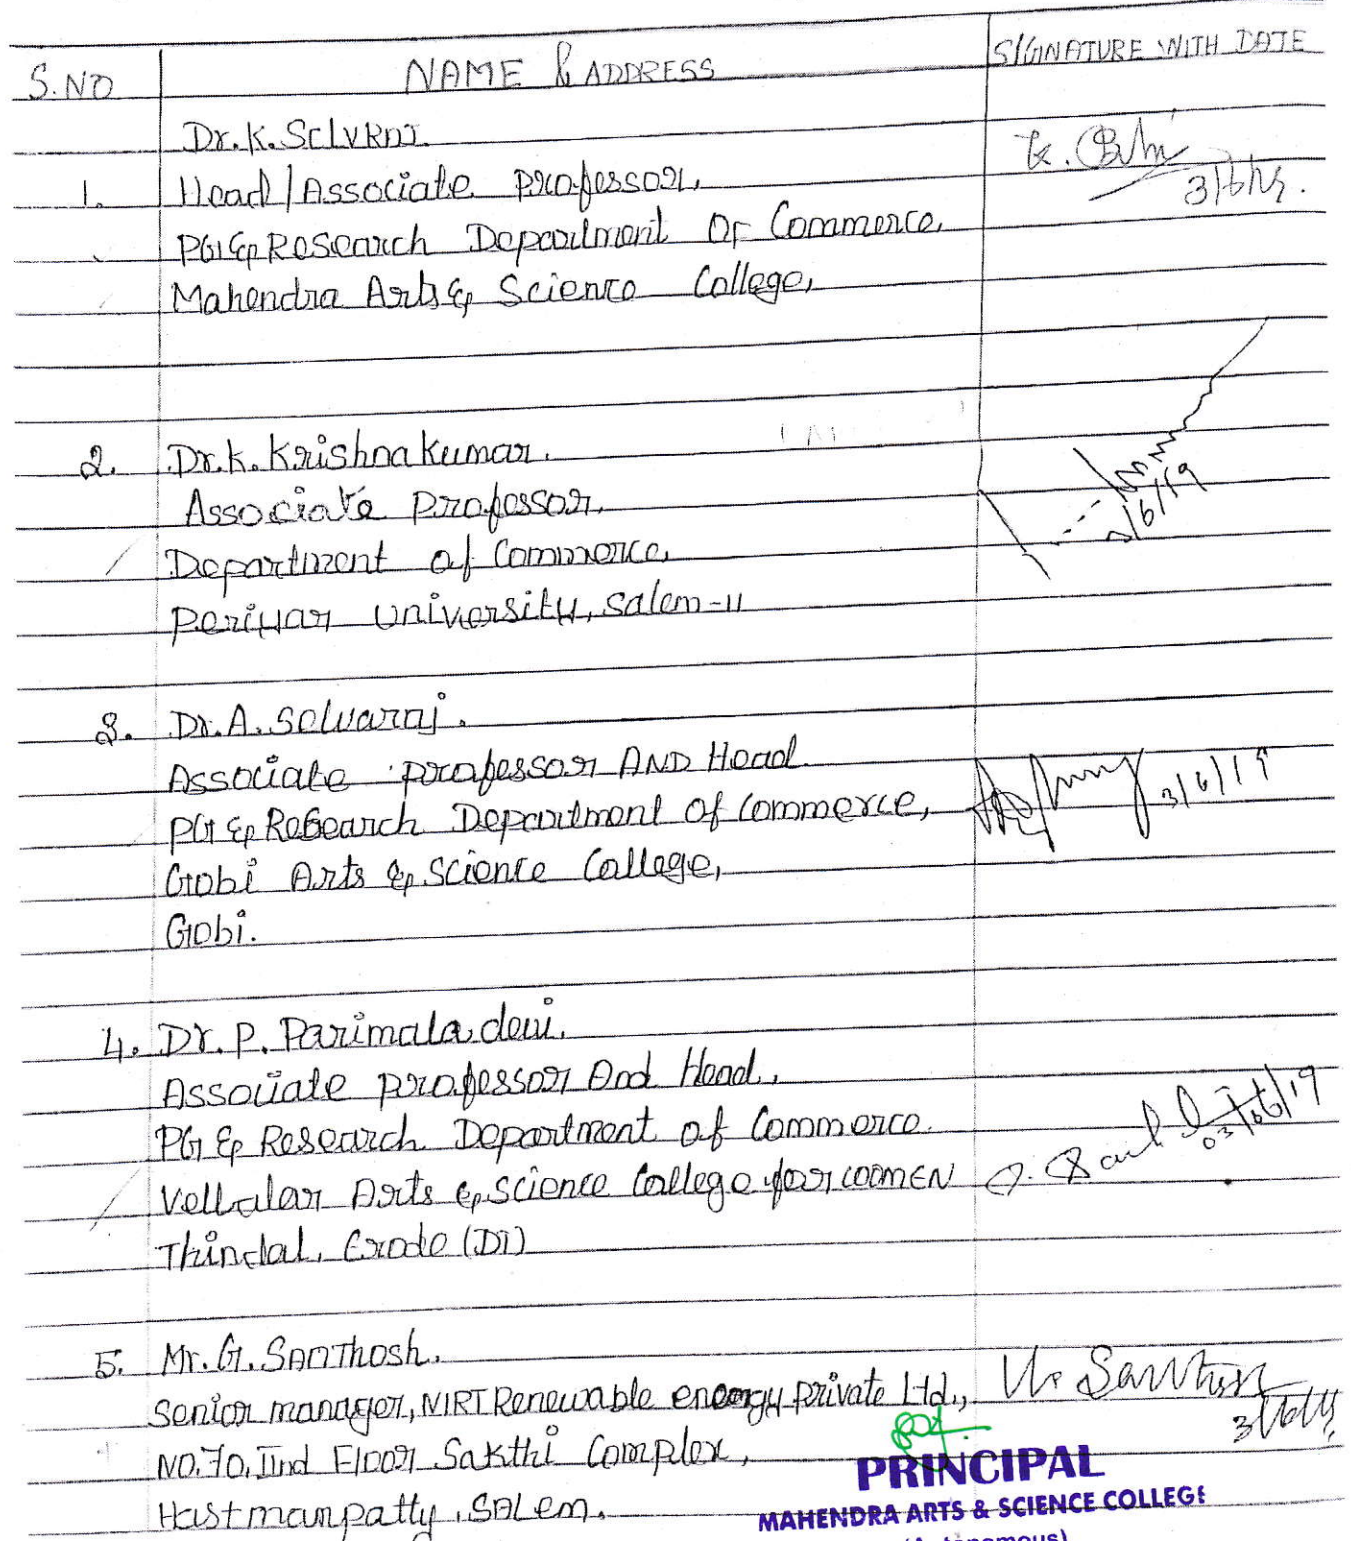 S.NO NAME & ADDRESS SIGNATURE WITH DATE
Dr.K.SELVRAJ.
1. Head/Associate professor, 3/6/19.
PG & Research Department OF Commerce,
Mahendra Arts & Science College,
2. Dr.K.Krishnakumar.
Associate Professor, 3/6/19
Department of Commerce,
Periyar University, Salem-11
3. Dr.A.Selvaraj.
Associate professor AND Head 3/6/19
PG & Research Department of Commerce,
Gobi Arts & Science College,
Gobi.
4. Dr. P. Parimala devi,
Associate professor And Head,
PG & Research Department of Commerce 03/06/19
Vellalar Arts & Science College for women
Thindal, Erode (DT)
5. Mr. G. SANThosh,
Senior manager, NIRT Renewable energy private Ltd.,
NO.70, IInd Floor Sakthi Complex, 3/6/19
Hastmanpatty, SALem.
PRINCIPAL
MAHENDRA ARTS & SCIENCE COLLEGE
(Autonomous)